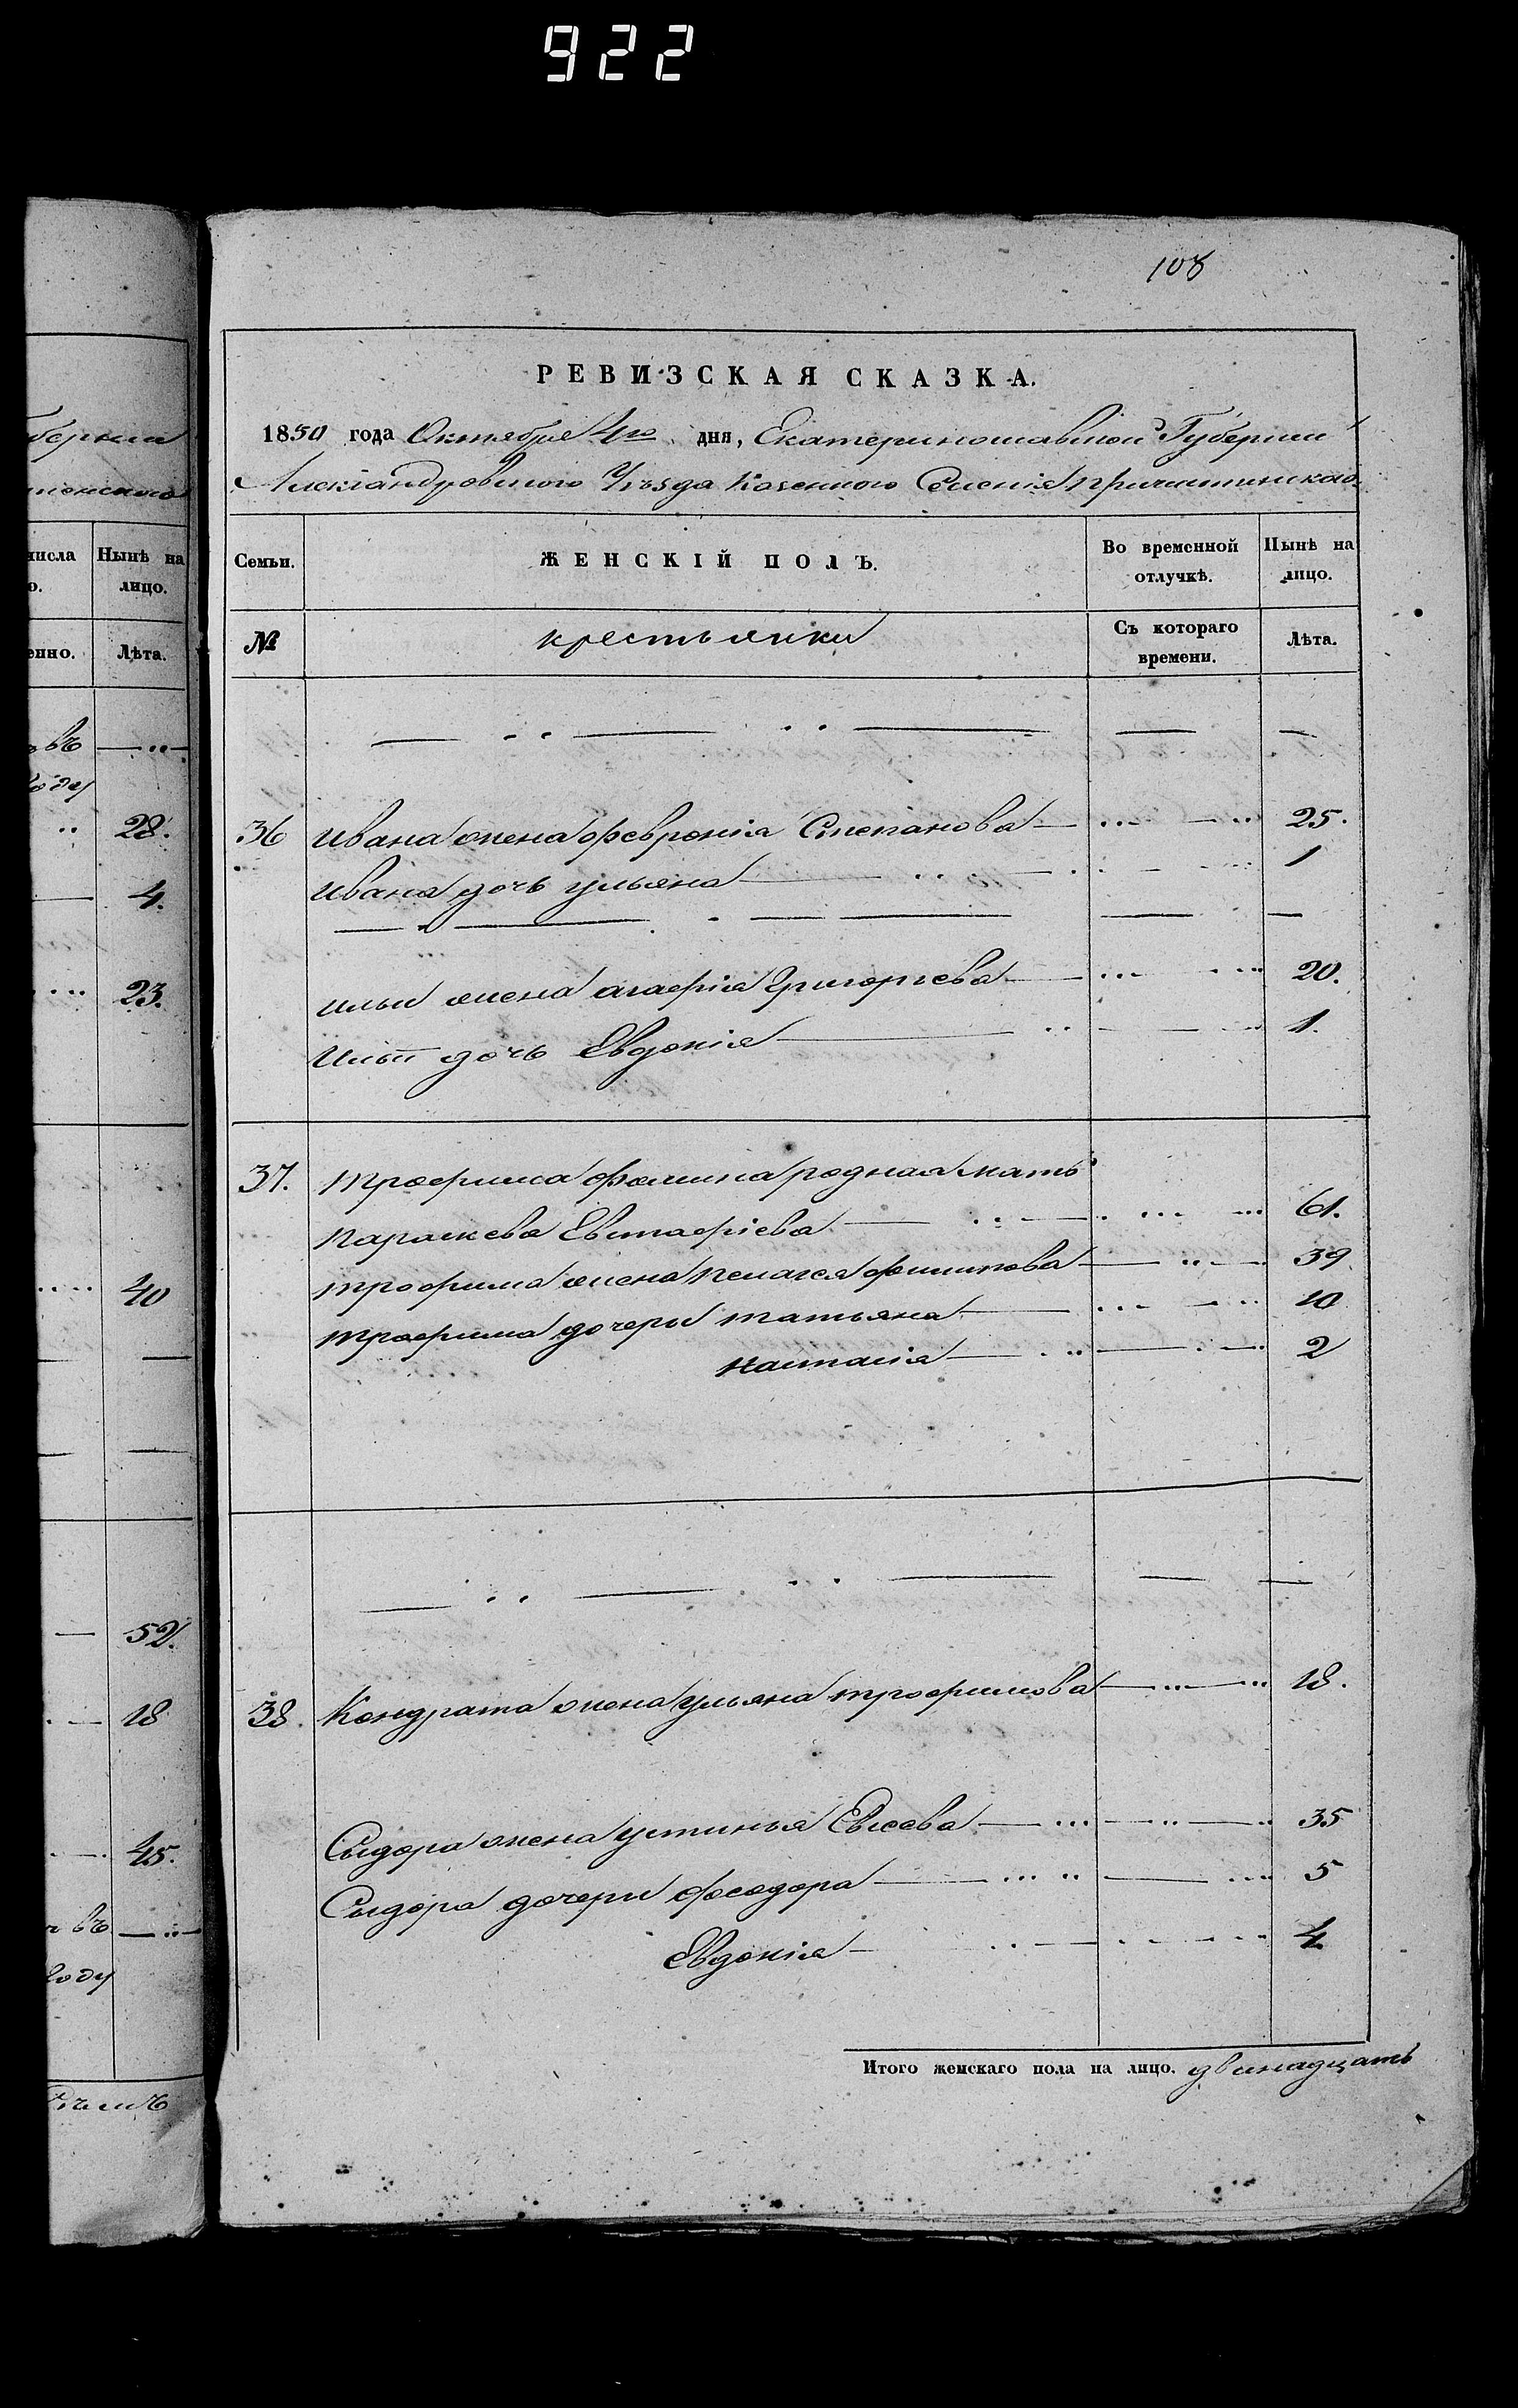 922
108
РЕВИЗСКАЯ СКАЗКА.
1850 года Октября 4го дня, Екатеринославской Губерніи
Александровского Уѣзда Казенного Селенія Причистинскаго
Семьи. ЖЕНСКІЙ ПОЛЪ. Во временной отлучкѣ. Нынѣ на лицо.
№ крестьянки Съ котораго времени. Лѣта.
36 Ивана жена февронія Степанова 25.
Ивана дочь ульяна 1
ильи жена агафія Григорьева 20.
Ильи дочь Евдокія 1.
37. трофима фомина родная мать
параскева Евстафіева 61.
трофима жена пелагея филипова 39
трофима дочери татьяна 10
настасія 2
38. Кондрата жена ульяна трофимова 18.
Сидора жена устинья Евсеева 35
Сидора дочери феодора 5
Евдокія 4
Итого женскаго пола на лицо. двенадцать
берніи
числа Нынѣ на
о. лицо.
енно. Лѣта.
въ
году
28.
4.
23.
40
52.
18
45.
въ
году